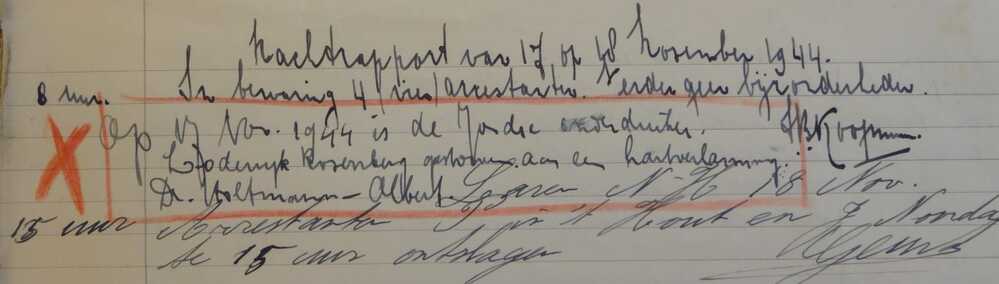 Nachtrapport van 17 op 18 November 1944.
8 uur. In bewaring 4 (vier) arrestanten. Verder geen bijzonderheden.
Op 17 Nov. 1944 is de Joodse onderduiker. Koopman
Lodewijk Rosenberg gestorven aan een hartverlamming.
Dr. Holtmann - Albert Laren N-H 18 Nov.
15 uur Arrestanten in 't Hout en J
te 15 uur ontslagen